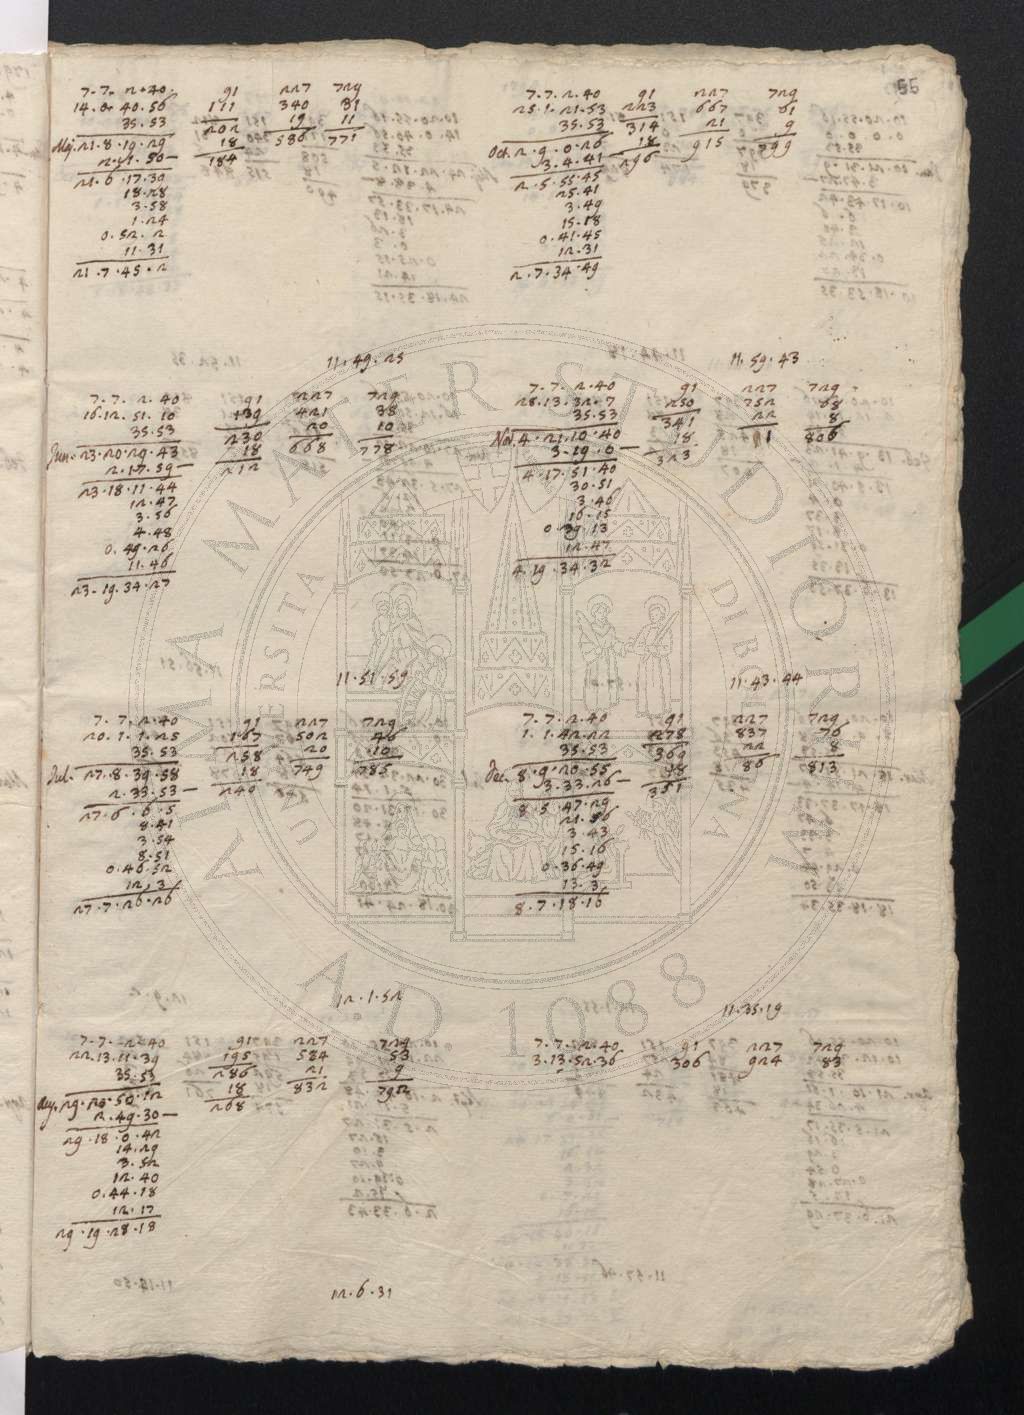 55
7.7.2.40 91 227 729
14.0.40.56 111 340 31
35.53 202 19 11
Maj. 21.8.19.29 18 586 771
184
21.6.17.30
18.28
3.58
1.24
0.52.2
11.31
21.7.45.2
11.49.25
7.7.2.40 91 227 729
25.1.21.53 223 667 61
35.53 314 21 9
Oct. 2.9.0.26 18 915 799
3.4.41 296
2.5.55.45
25.41
3.49
15.18
0.41.45
12.31
2.7.34.49
11.59.43
7.7.2.40 91 227 729
16.12.51.10 139 421 38
35.53 230 20 10
Jun. 23.20.29.43 18 668 778
2.17.59— 212
23.18.11.44
12.47
3.56
4.48
0.49.26
11.46
23.19.34.27
11.51.59
7.7.2.40 91 227 729
28.13.32.7 250 752 68
35.53 341 22 8
Nov. 4.21.10.40 18 1 806
3.19.0— 323
4.17.51.40
30.51
3.46
16.15
0.39.13
12.47
4.19.34.32
11.43.44
7.7.2.40 91 227 729
20.1.1.25 167 502 46
35.53 258 20 10
Jul. 27.8.39.58 18 749 785
2.33.53— 240
27.6.6.5
8.41
3.54
8.51
0.46.52
12.3
27.7.26.26
12.1.52
7.7.2.40 91 227 729
1.1.42.22 278 837 76
35.53 369 22 8
Dec. 8.9.20.55 18 86 813
3.33.26— 351
8.5.47.29
21.56
3.43
15.16
0.36.49
13.3
8.7.18.16
11.35.19
7.7.2.40 91 227 729
22.13.11.39 195 584 53
35.53 286 21 9
Aug. 29.20.50.12 18 832 792
2.49.30— 268
29.18.0.42
14.29
3.52
12.40
0.44.18
12.17
29.19.28.18
12.6.31
7.7.2.40 91 227 729
3.13.52.36 306 924 83